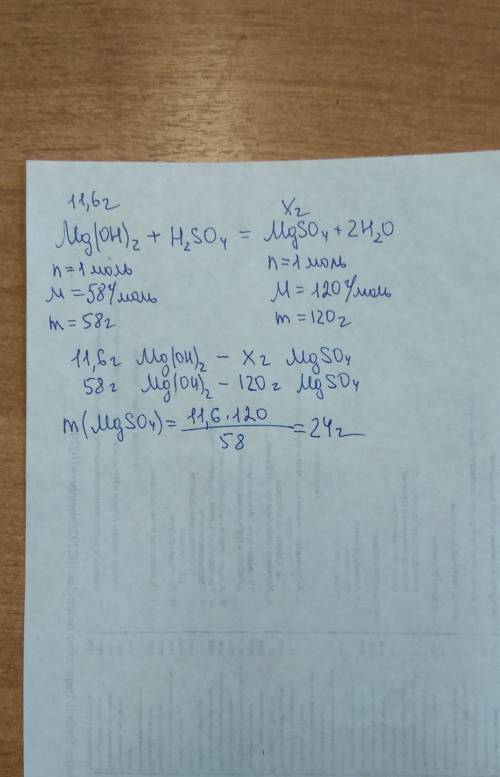 11,6г Xг
Mg(OH)₂ + H₂SO₄ = MgSO₄ + 2H₂O
n = 1 моль n = 1 моль
M = 58г/моль M = 120г/моль
m = 58г m = 120г
11,6г Mg(OH)₂ – Xг MgSO₄
58г Mg(OH)₂ – 120г MgSO₄
m(MgSO₄) = 11,6·120 / 58 = 24г